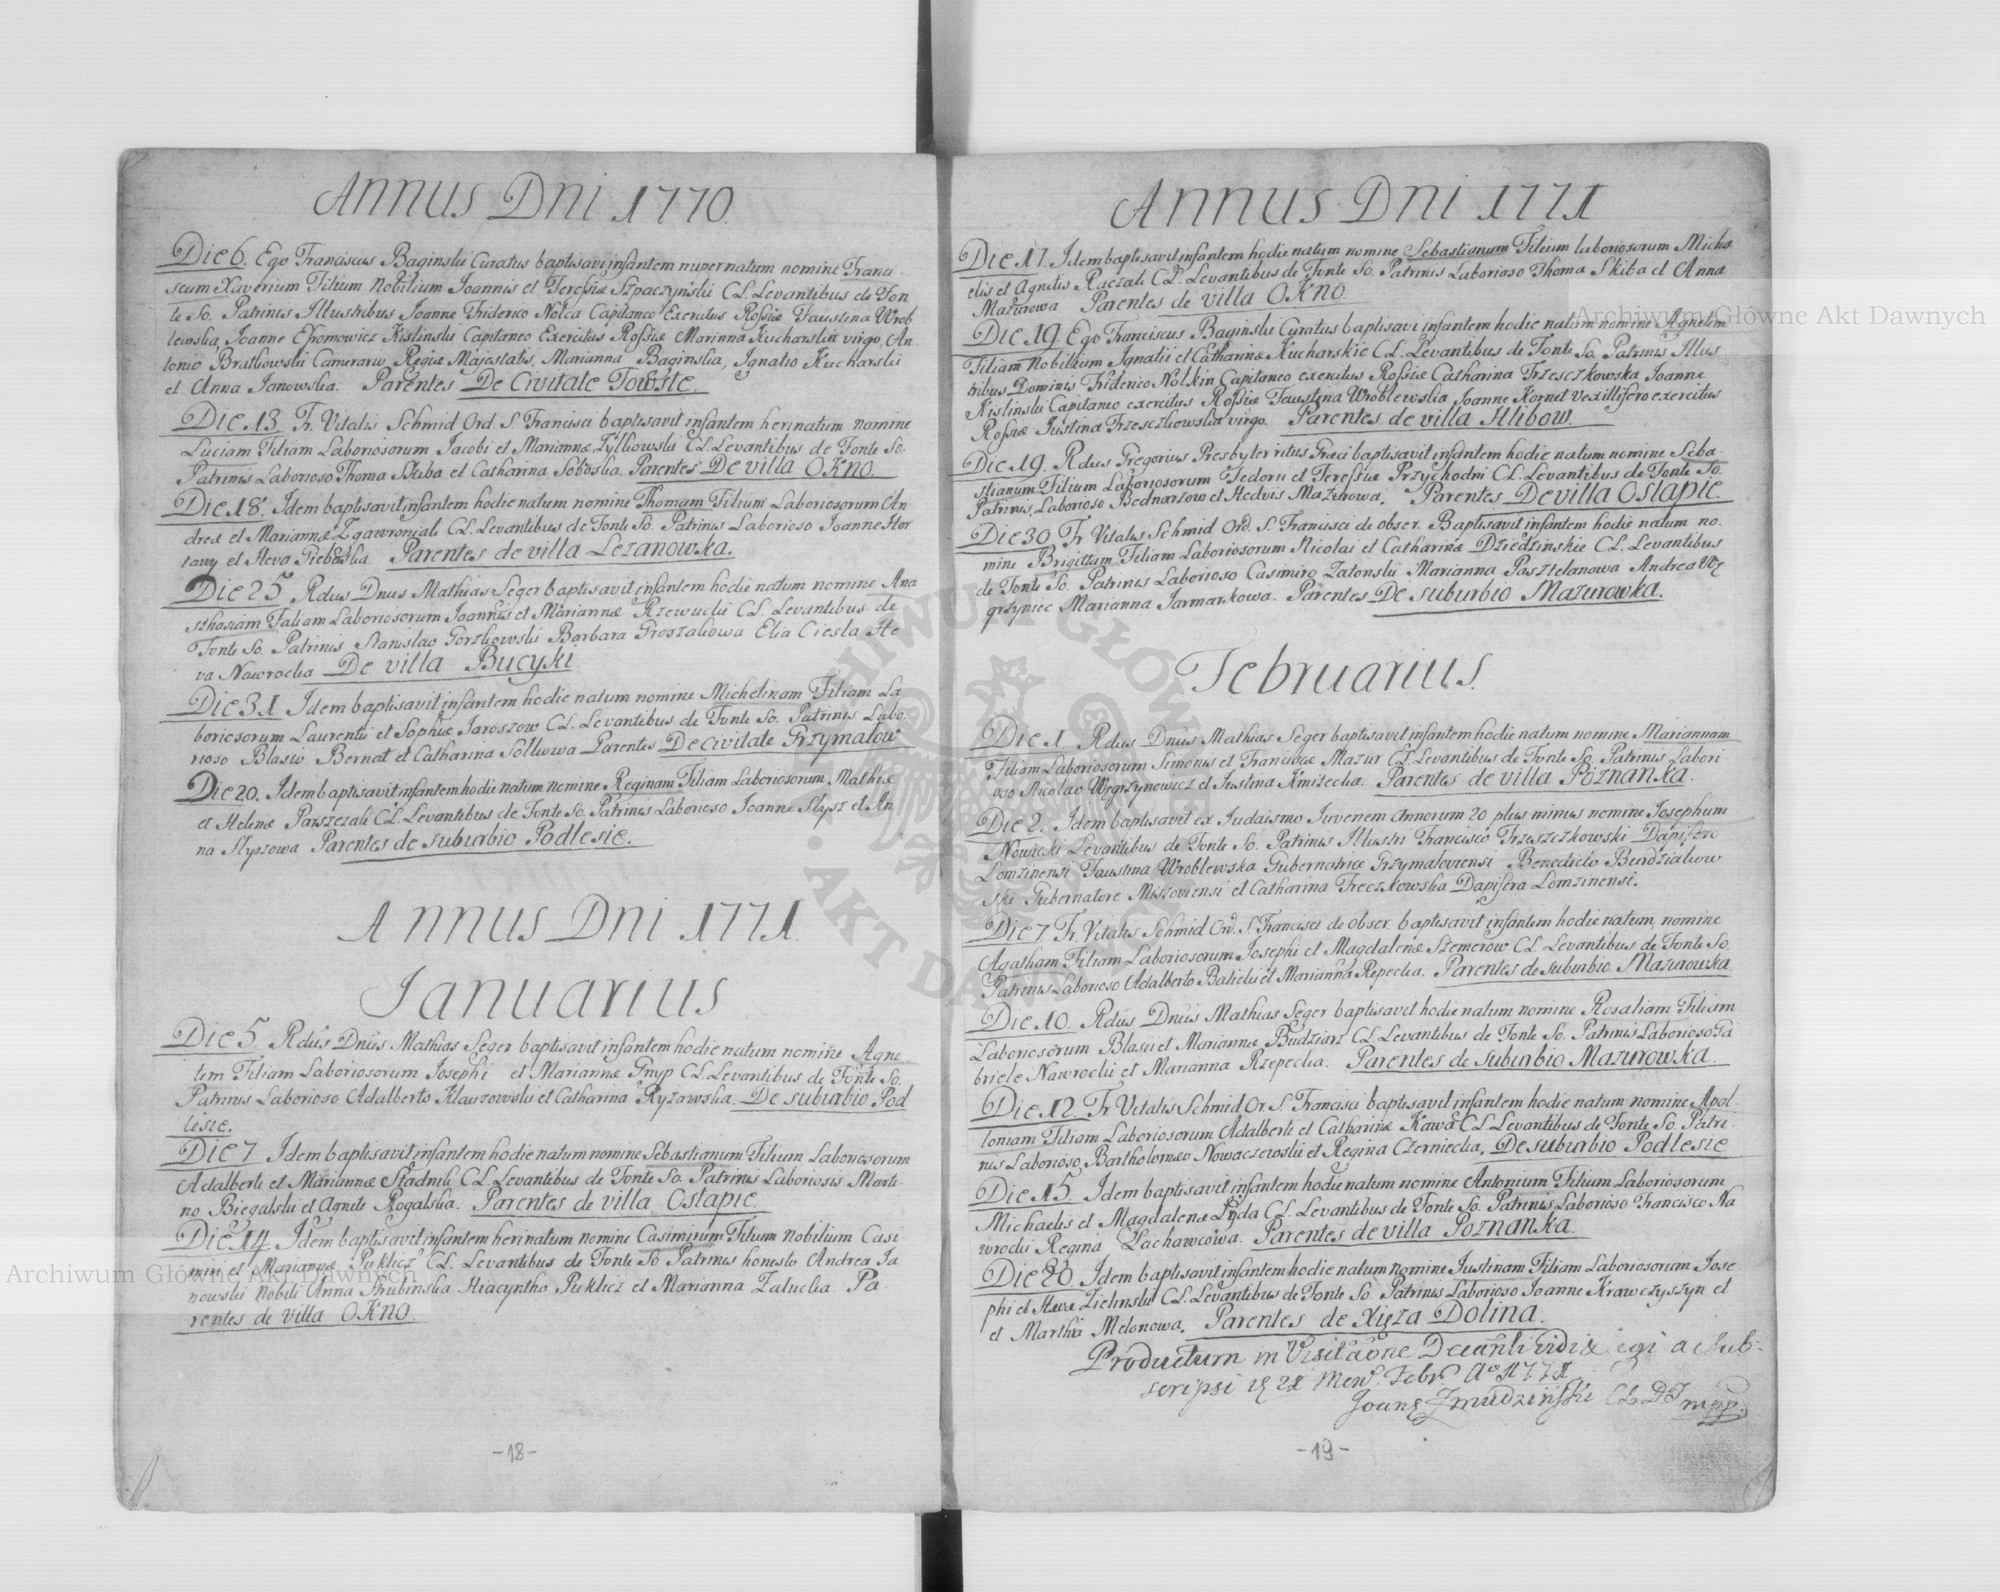 Annus Dni 1770.
Die 6. Ego Franciscus Baginski Curatus baptisavi infantem nuper natum nomine Franci-
scum Xaverium Filium Nobilium Joannis et Teressiæ Szpaczynski CL. Levantibus de Fon-
te So. Patrinis Illustribus Joanne Friderico Nolca Capitaneo Exercitus Rossiæ Faustina Wrob
lewska, Joanne Kislinski Capitaneo Exercitus Rossiæ Marinna Kucharska virgo, An-
tonio Bratkowski Camerario Regiæ Majestatis, Marianna Baginska, Ignatio Kucharski
et Anna Janowska. Parentes De Civitate Towste.
Die 13. Fr. Vitalis Schmid Ord. S. Francisci baptisavit infantem heri natum nomine
Luciam Filiam Laboriosorum Jacobi et Mariannæ CL. Levantibus de Fonte So.
Patrinis Laborioso Thoma Skiba et Catharina Soboska. Parentes De villa OKno.
Die 18. Idem baptisavit infantem hodie natum nomine Thomam Filium Laboriosorum An
dreæ et Mariannæ Zgawroniak CL. Levantibus de Fonte So. Patrinis Laborioso Joanne Hor
et Heva Parentes de villa Lezanowka.
Die 25 Rdus Dnus Mathias Seger baptisavit infantem hodie natum nomine Ana
sthasiam Faliam Laboriosorum Joannis et Mariannæ Rzewucki CL. Levantibus de
Fonte So. Patrinis Stanislao Gorzkowski Barbara Groszakowa Elia Ciesla He
va Nawrocka De villa Bucyki
Die 31 Idem baptisavit infantem hodie natum nomine Michelinam Filiam La
boriosorum Laurentii et Sophiæ Jaroszow CL. Levantibus de Fonte So. Patrinis Labo-
rioso Blasio Bernat et Catharina Sollwowa Parentes De Civitate Grzymalow
Die 20. Idem baptisavit infantem hodie natum nomine Reginam Filiam Laboriosorum Mathiæ
et Helenæ Parszezali CL. Levantibus de Fonte So. Patrinis Laborioso Joanne Slysz et An
na Slyszowa Parentes de suburbio Podlesie.
Annus Dni 1771
Januarius
Die 5. Rdus Dnus Mathias Seger baptisavit infantem hodie natum nomine Agne
tem Filiam Laboriosorum Josephi et Mariannæ Gnyp CL. Levantibus de Fonte So.
Patrinis Laborioso Adalberto Klauzowski et Catharina Ryzawska. De suburbio Pod
lesie.
Die 7 Idem baptisavit infantem hodie natum nomine Sebastianum Filium Laboriosorum
Adalberti et Mariannæ Stadnik CL. Levantibus de Fonte So. Patrinis Laboriosis Marti-
no Biegalski et Agnete Rogalska. Parentes de villa Ostapie.
Die 14. Idem baptisavit infantem heri natum nomine Casimirum Filium Nobilium Casi
miri et Mariannæ Puklicz CL. Levantibus de Fonte So Patrinis honesto Andrea Ja
nowski Nobili Anna Hrubinska Hiacyntho Puklicz et Marianna Zalucka Pa-
rentes de villa OKno.
-18-
Annus Dni 1771
Die 17. Idem baptisavit infantem hodie natum nomine Sebastianum Filium laboriosorum Micha
elis et Agnetis Raczali CL. Levantibus de Fonte So. Patrinis Laborioso Thoma Skiba et Anna
Mazurowa Parentes de villa OKno.
Die 19. Ego Franciscus Baginski Curatus baptisavi infantem hodie natam nomine Agnetem
Filiam Nobilium Ignatii et Catharinæ Kucharskie CL. Levantibus de Fonte So. Patrinis Illus-
tribus Dominis Friderico Nolkin Capitaneo exercitus Rossiæ Catharina Trzesczkowska Joanne
Kislinski Capitaneo exercitus Rossiæ Faustina Wroblewska Joanne Kornet vexillifero exercitus
Rossiæ Justina Trzesczkowska virgo. Parentes de villa Hlibow.
Die 19. Rdus Gregorius Presbyter ritus Græci baptisavit infantem hodie natum nomine Seba-
stianum Filium Laboriosorum Fedorii et Teressiæ Przychodni CL. Levantibus de Fonte So.
Patrinis Laborioso Bednarzow et Hedvis Mazurowa. Parentes De villa Ostapie.
Die 30 Fr Vitalis Schmid Ord. S. Francisci de obser. Baptisavit infantem hodie natum no-
mine Brigittam Filiam Laboriosorum Nicolai et Catharinæ Dziedzinskie CL. Levantibus
de Fonte So. Patrinis Laborioso Casimiro Zatonski Marianna Pasztelanowa Andrea Wę
grzyniec Marianna Jarmarkowa. Parentes De suburbio Mazurowka.
Februarius.
Die 1 Rdus Dnus Mathias Seger baptisavit infantem hodie natum nomine Mariannam
Filiam Laboriosorum Simonis et Franciscæ Mazur CL. Levantibus de Fonte So. Patrinis Labori
oso Nicolao Węgrzynowicz et Justina Kmitecka. Parentes de villa Poznanka.
Die 2. Idem baptisavit ex Judaismo Iuvenem annorum 20 plus minus nomine Josephum
Nowicki Levantibus de Fonte So. Patrinis Illustri Francisco Trzeszczkowski Dapifero
Lomzinensi Faustina Wroblewska Gubernatrice Grzymaloviensi Benedicto Burdziakow
ski Gubernatore Missoviensi et Catharina Treczkowska Dapifera Lomzinensi.
Die 7 Fr. Vitalis Schmid Ord. S. Francisci de obser. baptisavit infantem hodie natum, nomine
Agatham Filiam Laboriosorum Josephi et Magdalenæ Szemerow CL. Levantibus de Fonte So.
Patrinis Laborioso Adalberto Balicki et Marianna Repecka. Parentes de suburbio Mazurowka
Die 10. Rdus Dnus Mathias Seger baptisavit hodie natum nomine Rosaliam Filiam
Laboriosorum Blasii et Mariannæ Budziarz CL. Levantibus de Fonte So. Patrinis Laborioso Ga
briele Nawrocki et Marianna Rzepecka. Parentes de suburbio Mazurowka.
Die 12. Fr Vitalis Schmid Or S. Francisci baptisavit infantem hodie natum nomine Apol-
loniam Filiam Laboriosorum Adalberti et Catharinæ Kawa CL. Levantibus de Fonte So. Patri-
nis Laborioso Bartholomæo Nowaczewski et Regina Czerniecka. De suburbio Podlesie
Die 15. Idem baptisavit infantem hodie natum nomine Antonium Filium Laboriosorum
Michaelis et Magdalenæ Lyda CL. Levantibus de Fonte So. Patrinis Laborioso Francisco Na
wrocki Regina Lachawcowa. Parentes de villa Poznanka.
Die 20. Idem baptisavit infantem hodie natum nomine Justinam Filiam Laboriosorum Jose
phi et Hevæ Zielinski CL. Levantibus de Fonte So. Patrinis Laborioso Joanne Krawczyszyn et
et Martha Melonowa. Parentes de Xięza Dolina.
Productum in Visitaōne Decanli vidi legi ac sub-
scripsi 21 Mens. Febr. Ao 1771
Joans Zmudzinski mpp.
-19-
Archiwum Główne Akt Dawnych
Archiwum Główne Akt Dawnych
ARCHIWUM GŁÓWNE
AKT DAWNYCH